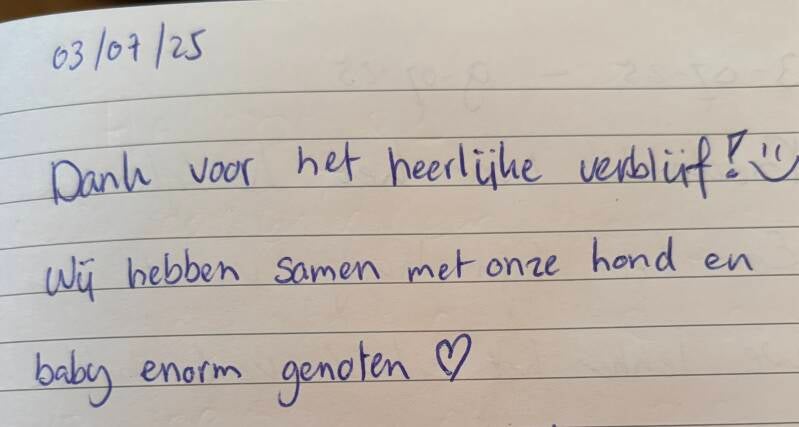 03/07/25
Dank voor het heerlijke verblijf! :)
Wij hebben samen met onze hond en
baby enorm genoten ♡